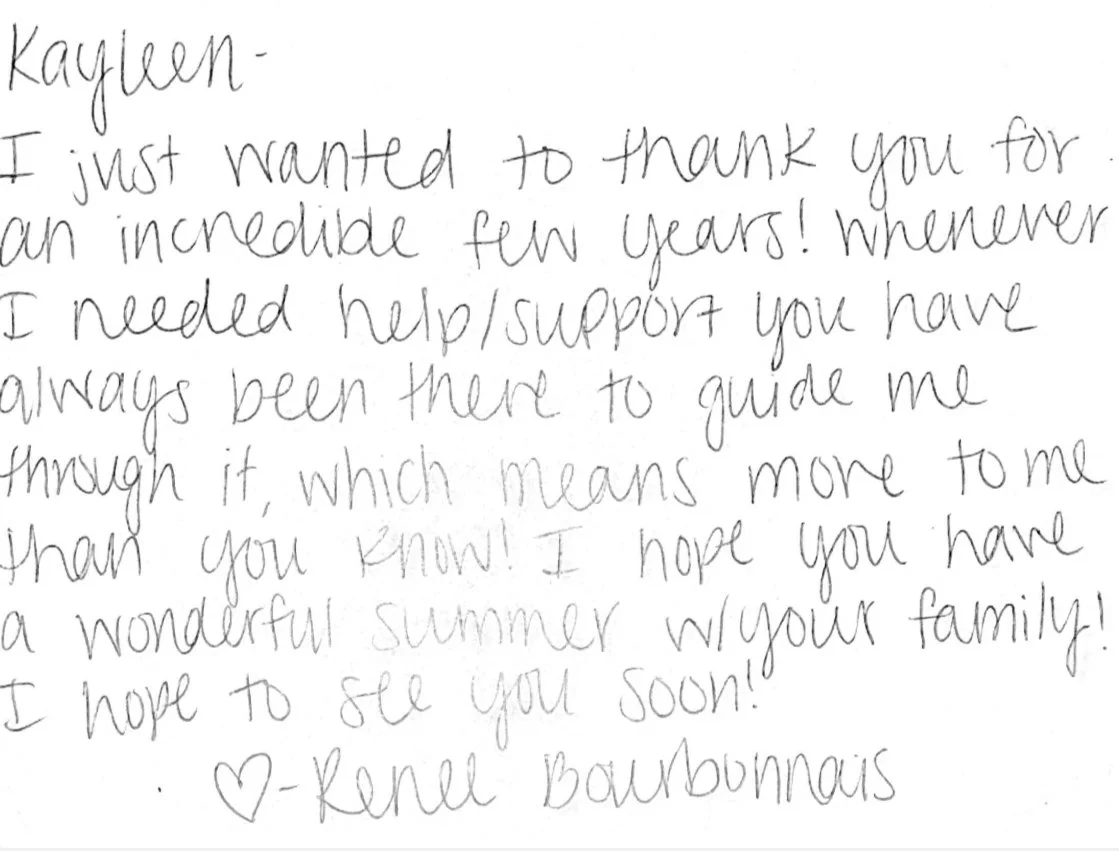 Kayleen-
I just wanted to thank you for
an incredible few years! Whenever
I needed help/support you have
always been there to guide me
through it, which means more to me
than you know! I hope you have
a wonderful summer w/your family!
I hope to see you soon!
♡-Renee Bourbonnais